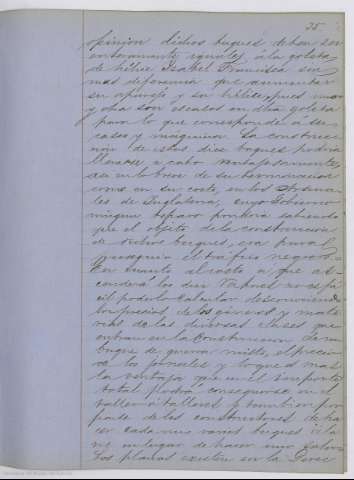 35
opinion dichos buques deben ser
enteramente iguales a la goleta
de hélice Isabel Francisca sin
mas diferencia que aumentar
su aparejo y su hélice, pues uno
y otra son escasos en dha goleta
para lo que corresponde a su
casco y maquina. La construc
cion de estos diez buques podria
llevarse a cabo ventajosamente,
asi en lo breve de su terminacion
como en su coste, en los Arsena
les de Inglaterra, cuyo Gobierno
ningun reparo pondria sabiendo
que el objeto de la construccion
de dichos buques, era para
perseguir el trafico negrero.
En cuanto al costo a que as-
cenderá los diez Vapores no es fa
cil poderlo calcular desconociendo
los precios de los géneros y mate
rias de las diversas clases que
entran en la construccion de un
buque de guerra misto, el precio
de los jornales y lo que es mas
la ventaja que en el importe
total podria conseguirse en el
taller ó talleres
parte de los constructores de ha
cer cada uno varios buques a la
vez en lugar de hacer uno solo.
Los planos existen en la Direc